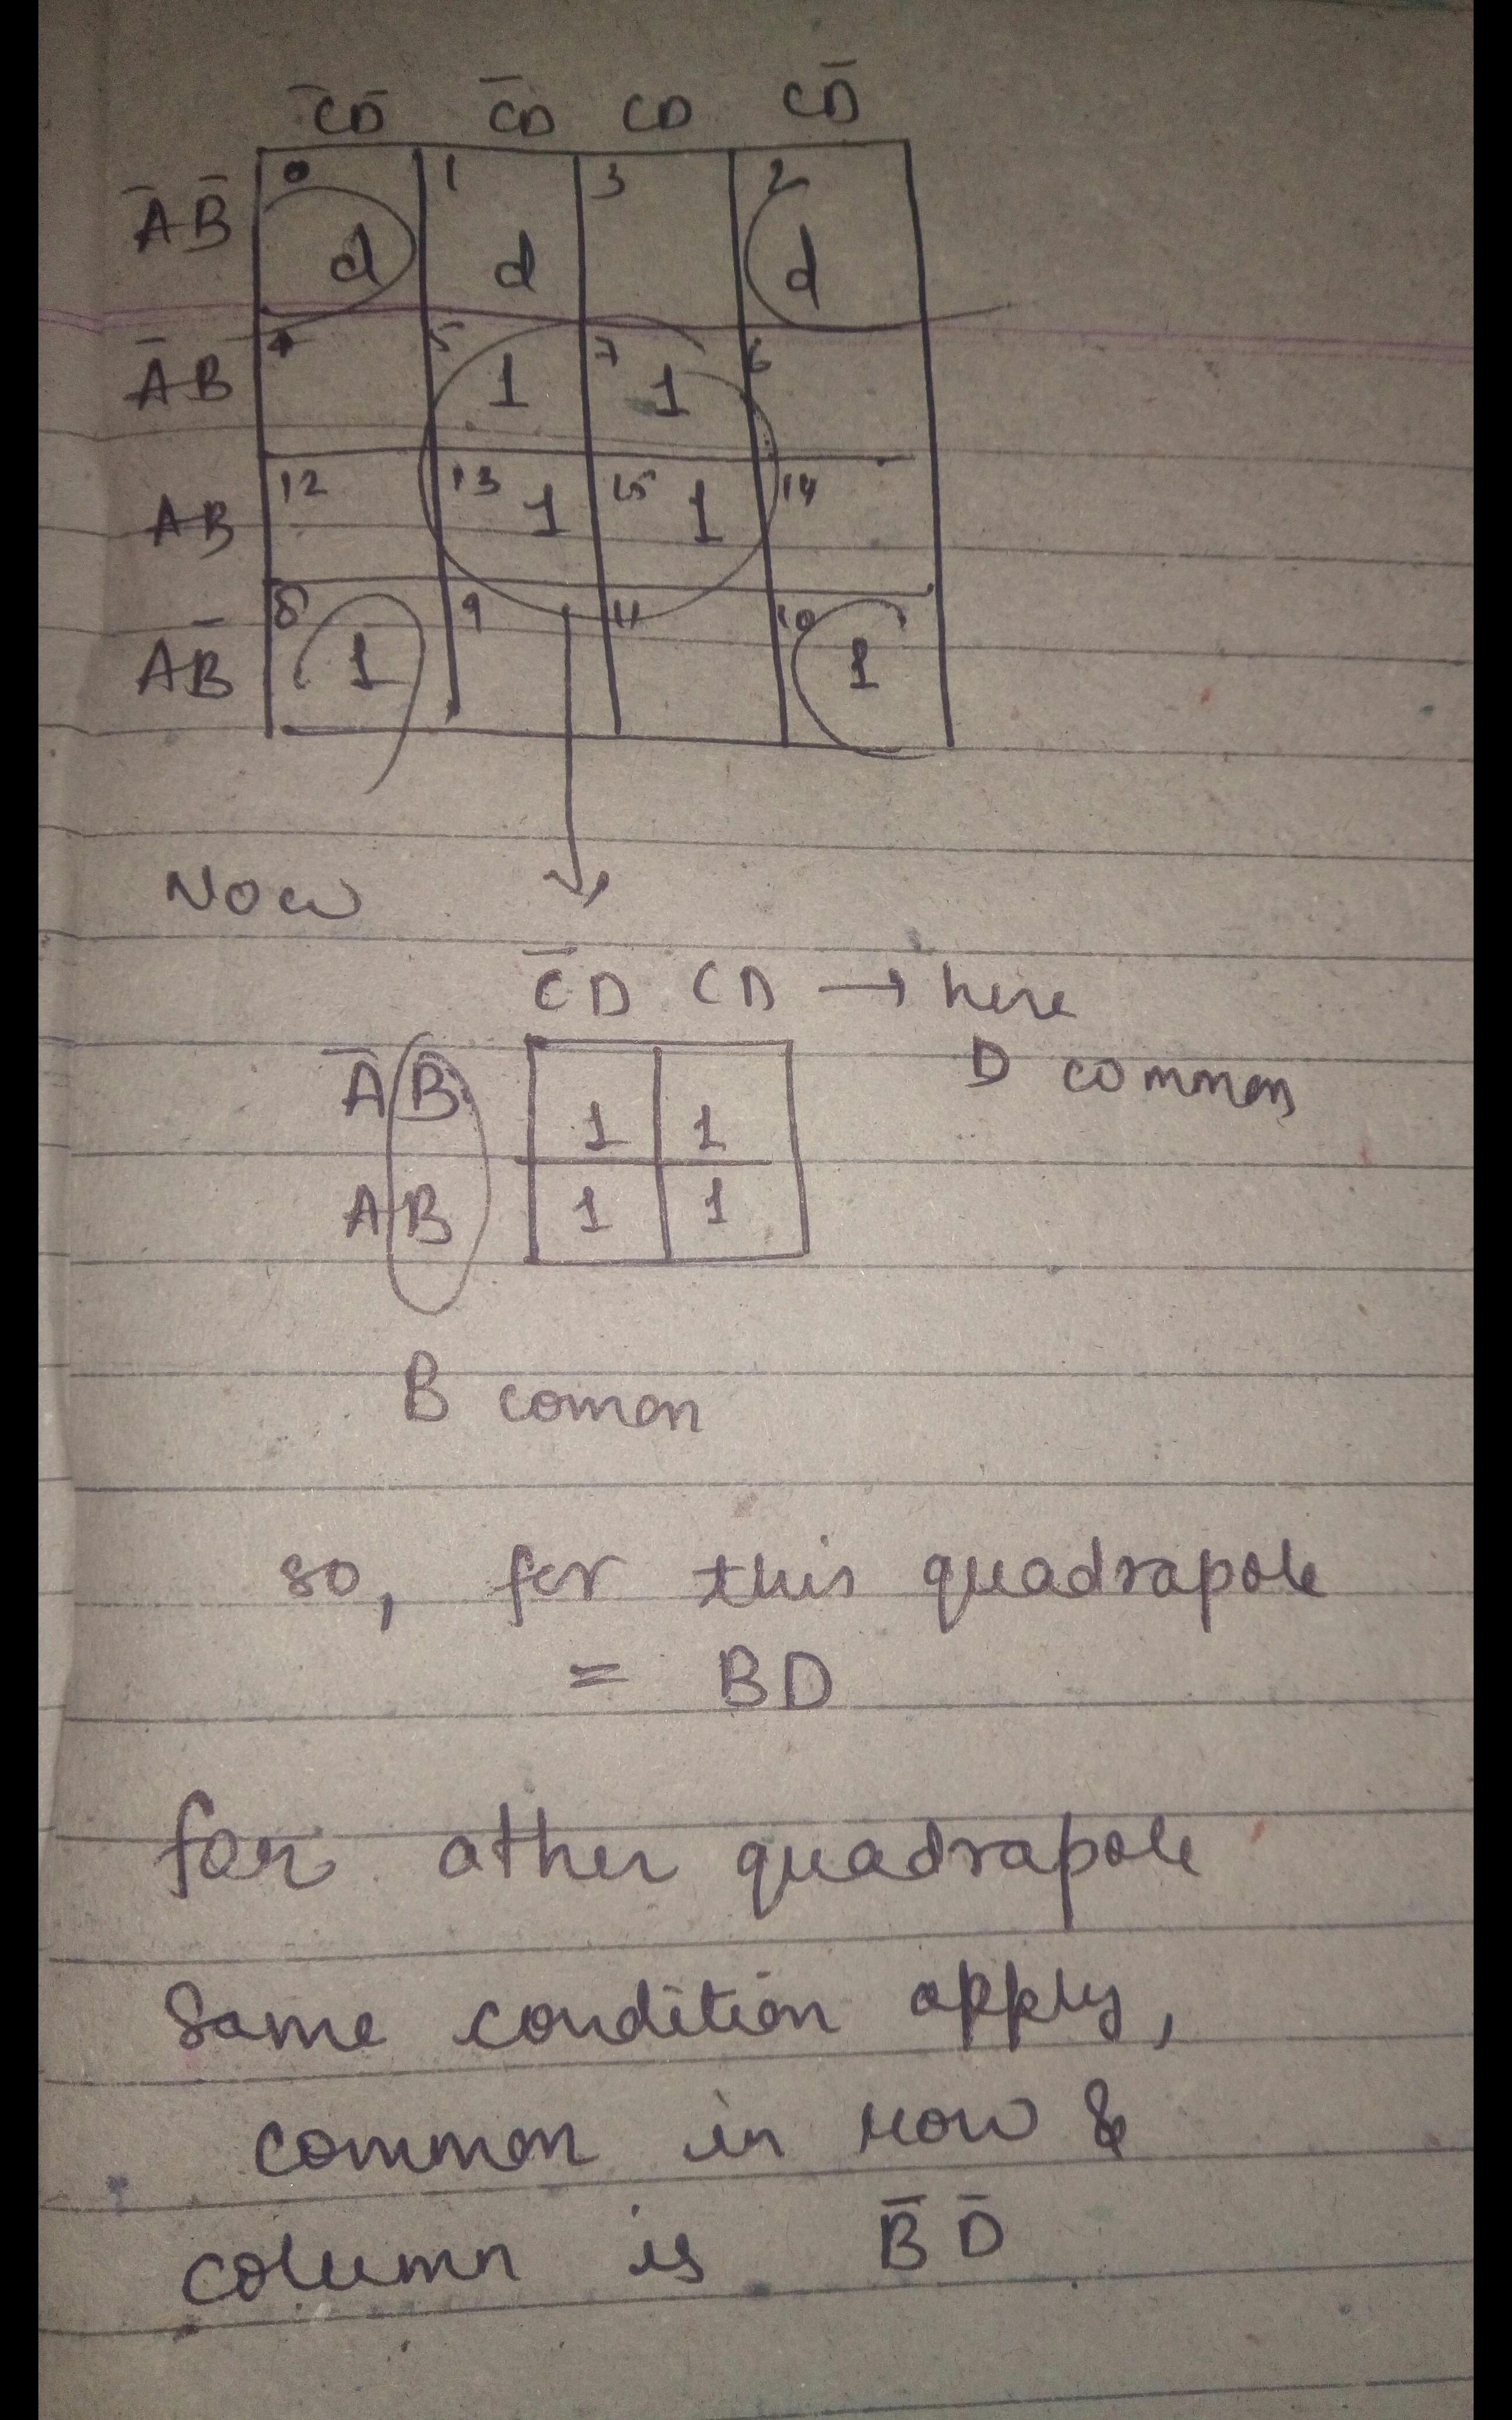 C̅D̅ C̅D CD CD̅
A̅B̅ 0 d 1 d 3 2 d
A̅B 4 5 1 7 1 6
AB 12 13 1 15 1 14
AB̅ 8 1 9 11 10 1
Now
C̅D CD → here
D common
A̅B 1 1
AB 1 1
B comon
so, for this quadrapole
= BD
for other quadrapole
Same condition apply,
common in row &
column is B̅ D̅